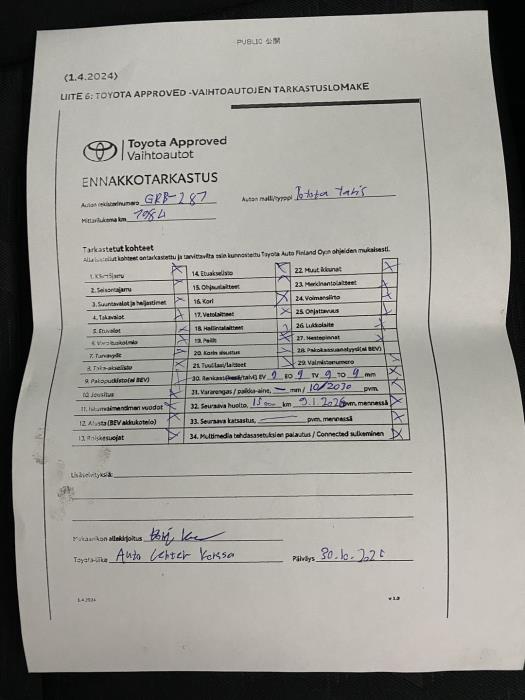 PUBLIC 公開
(1.4.2024)
LIITE 6: TOYOTA APPROVED -VAIHTOAUTOJEN TARKASTUSLOMAKE
Toyota Approved
Vaihtoautot
ENNAKKOTARKASTUS
Auton rekisterinumero GRB-287 Auton malli/tyyppi Toyota Yaris
Mittarilukema km 7984
Tarkastetut kohteet
kohteet on tarkastettu ja tarvittavilta osin kunnostettu Toyota Auto Finland Oy:n ohjeiden mukaisesti.
1. Käsijarru X 14. Etuakselisto X 22. Muut ikkunat X
2. Seisontajarru X 15. Ohjauslaitteet X 23. Merkinantolaitteet X
3. Suuntavalot ja heijastimet X 16. Kori X 24. Voimansiirto X
4. Takavalot X 17. Vetolaitteet X 25. Ohjattavuus X
5. Etuvalot X 18. Hallintalaitteet X 26. Lukkolaite X
6. X 19. Peilit X 27. Nestepinnat X
7. Turvavyöt X 20. Korin sisustus X 28. Pakokaasuanalyysi(ei BEV) X
8. Taka-akselisto X 21. Tuulilasi/laitteet X 29. Valmistenumero X
9. Pakoputkisto(ei BEV) X 30. Renkaat (kesä/talvi) EV 9 EO 9 TV 9 TO 9 mm X
10. Jousitus X 31. Vararengas / paikka-aine, — mm / 10/2030 pvm. X
11. Iskunvaimentimen vuodot X 32. Seuraava huolto, 15000 km 9.1.2026 pvm. mennessä X
12. Alusta (BEV akkukotelo) X 33. Seuraava katsastus, pvm. mennessä X
13. Roiskesuojat X 34. Multimedia tehdasasetuksien palautus / Connected sulkeminen X
Lisäselvityksiä:
Mekaanikon allekirjoitus
Toyota-liike Auto Center Päiväys 30.10.2025
1.4.2024 v 1.0